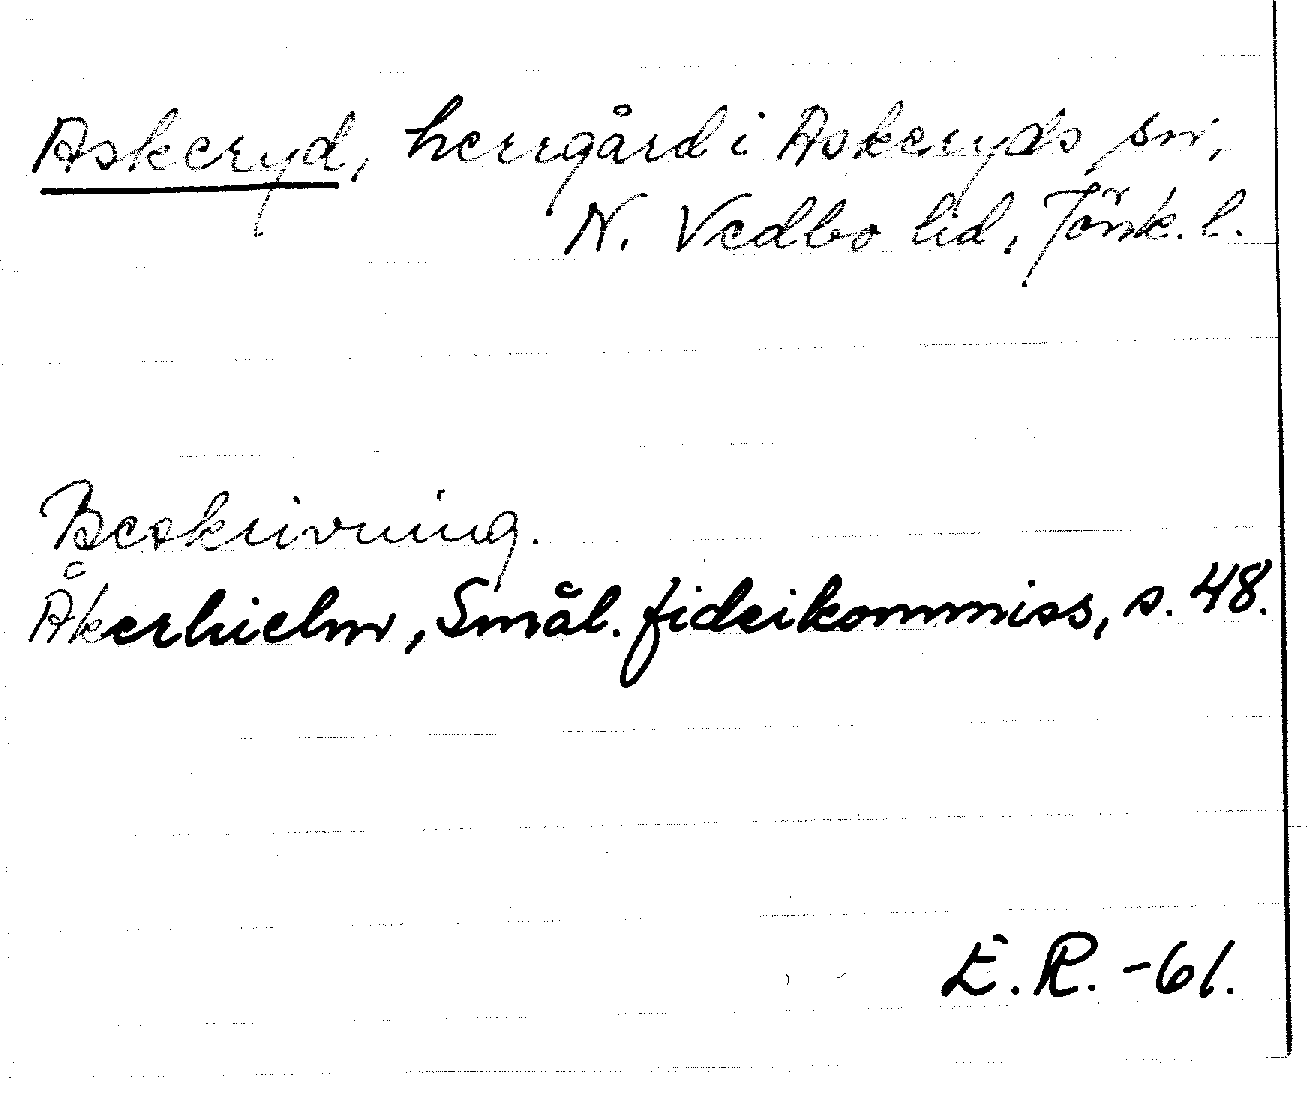 Askeryd, herrgård i Askeryds sn,
N. Vedbo hd, Jönk. l.
Beskrivning.
Åkerhielm, Smål. fideikommiss, s. 48.
E. R. -61.